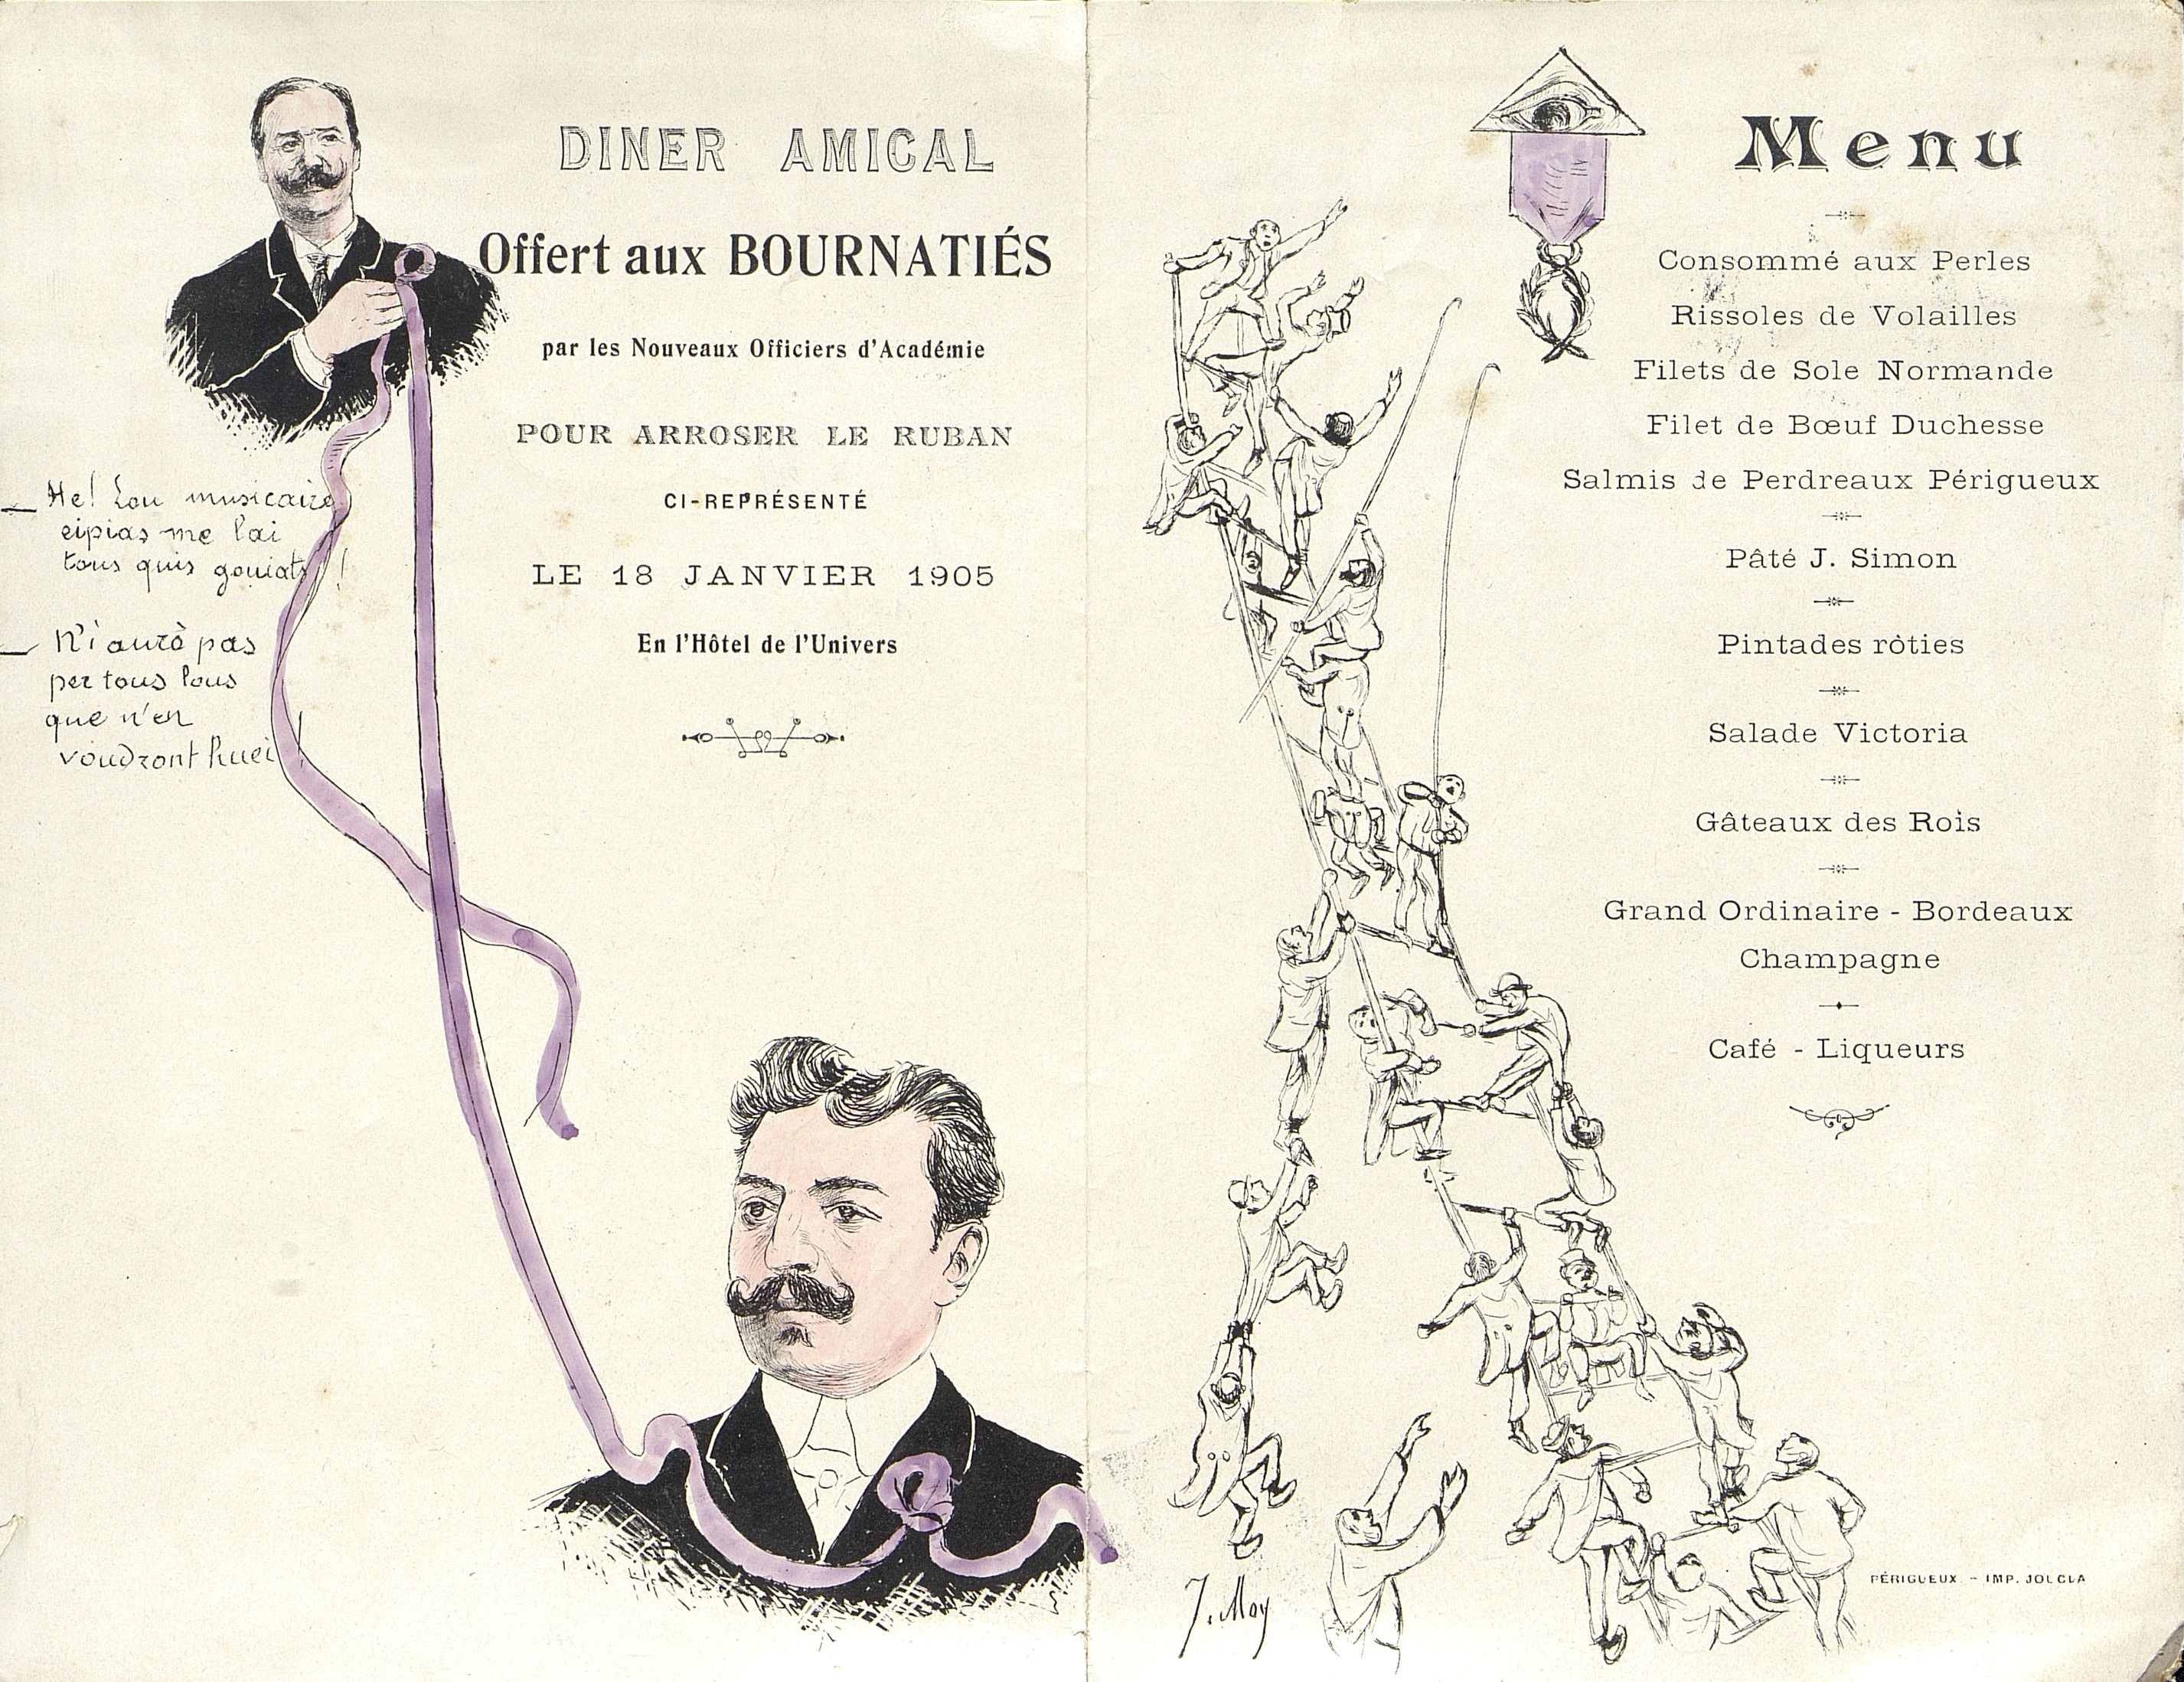 DINER AMICAL
Offert aux BOURNATIÉS
par les Nouveaux Officiers d'Académie
POUR ARROSER LE RUBAN
CI-REPRÉSENTÉ
LE 18 JANVIER 1905
En l'Hôtel de l'Univers
— He! Lou musicaire
eipias me l'ai
tous quis gouiats!
— N'i aurò pas
per tous lous
que n'en
voudront huei!
Menu
Consommé aux Perles
Rissoles de Volailles
Filets de Sole Normande
Filet de Bœuf Duchesse
Salmis de Perdreaux Périgueux
Pâté J. Simon
Pintades rôties
Salade Victoria
Gâteaux des Rois
Grand Ordinaire - Bordeaux
Champagne
Café - Liqueurs
J. May
PÉRIGUEUX. - IMP. JOUCLA